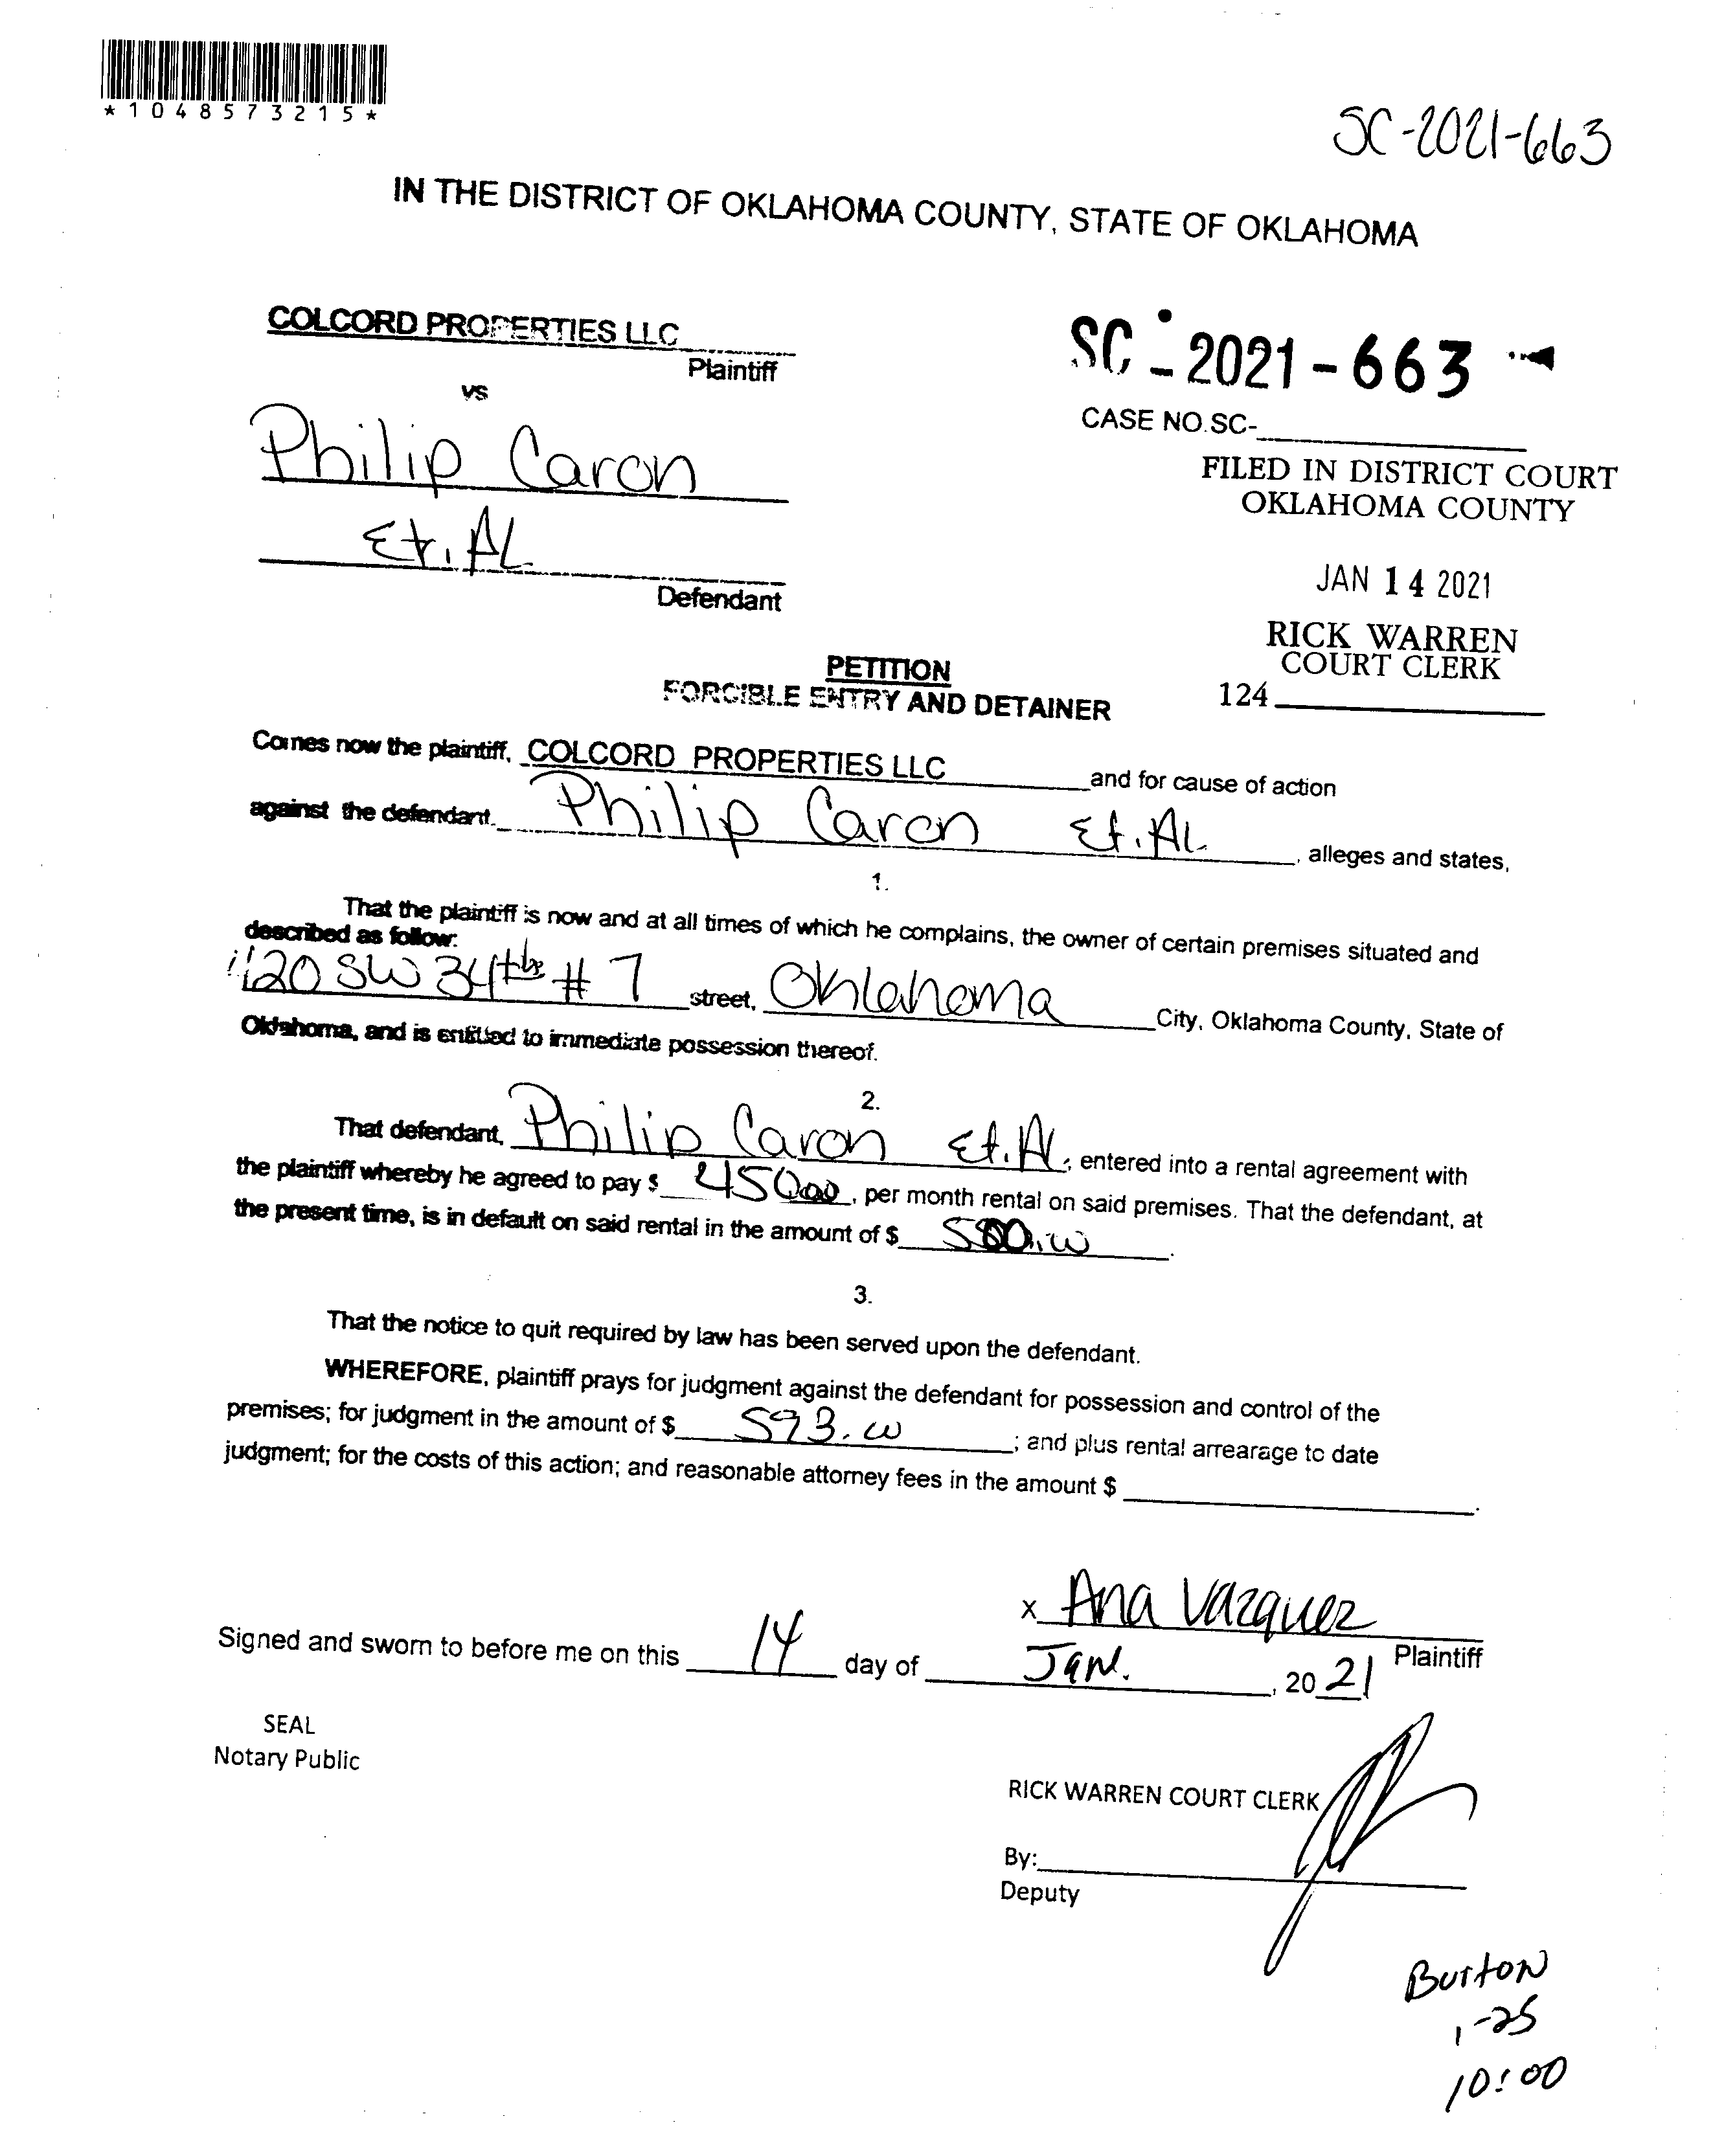 *1048573215*
SC-2021-663
IN THE DISTRICT OF OKLAHOMA COUNTY, STATE OF OKLAHOMA
COLCORD PROPERTIES LLC
Plaintiff
vs
SC-2021-663
CASE NO.SC-
Philip Caron
Et. AL
Defendant
FILED IN DISTRICT COURT
OKLAHOMA COUNTY
JAN 14 2021
RICK WARREN
COURT CLERK
124
PETITION
FORCIBLE ENTRY AND DETAINER
Comes now the plaintiff, COLCORD PROPERTIES LLC and for cause of action
against the defendant. Philip Caron Et. AL. , alleges and states,
1.
That the plaintiff is now and at all times of which he complains, the owner of certain premises situated and
described as follow:
1120 SW 34th # 7 street, Oklahoma City, Oklahoma County, State of
Oklahoma, and is entitled to immediate possession thereof.
2.
That defendant, Philip Caron Et. Al. , entered into a rental agreement with
the plaintiff whereby he agreed to pay $ 450.00 , per month rental on said premises. That the defendant, at
the present time, is in default on said rental in the amount of $ .
3.
That the notice to quit required by law has been served upon the defendant.
WHEREFORE, plaintiff prays for judgment against the defendant for possession and control of the
premises; for judgment in the amount of $ 593.00 ; and plus rental arrearage to date
judgment; for the costs of this action; and reasonable attorney fees in the amount $ .
x Ana Vazquez
Plaintiff
Signed and sworn to before me on this 14 day of Jan. , 2021
SEAL
Notary Public
RICK WARREN COURT CLERK
By:
Deputy
Burton
1-25
10:00